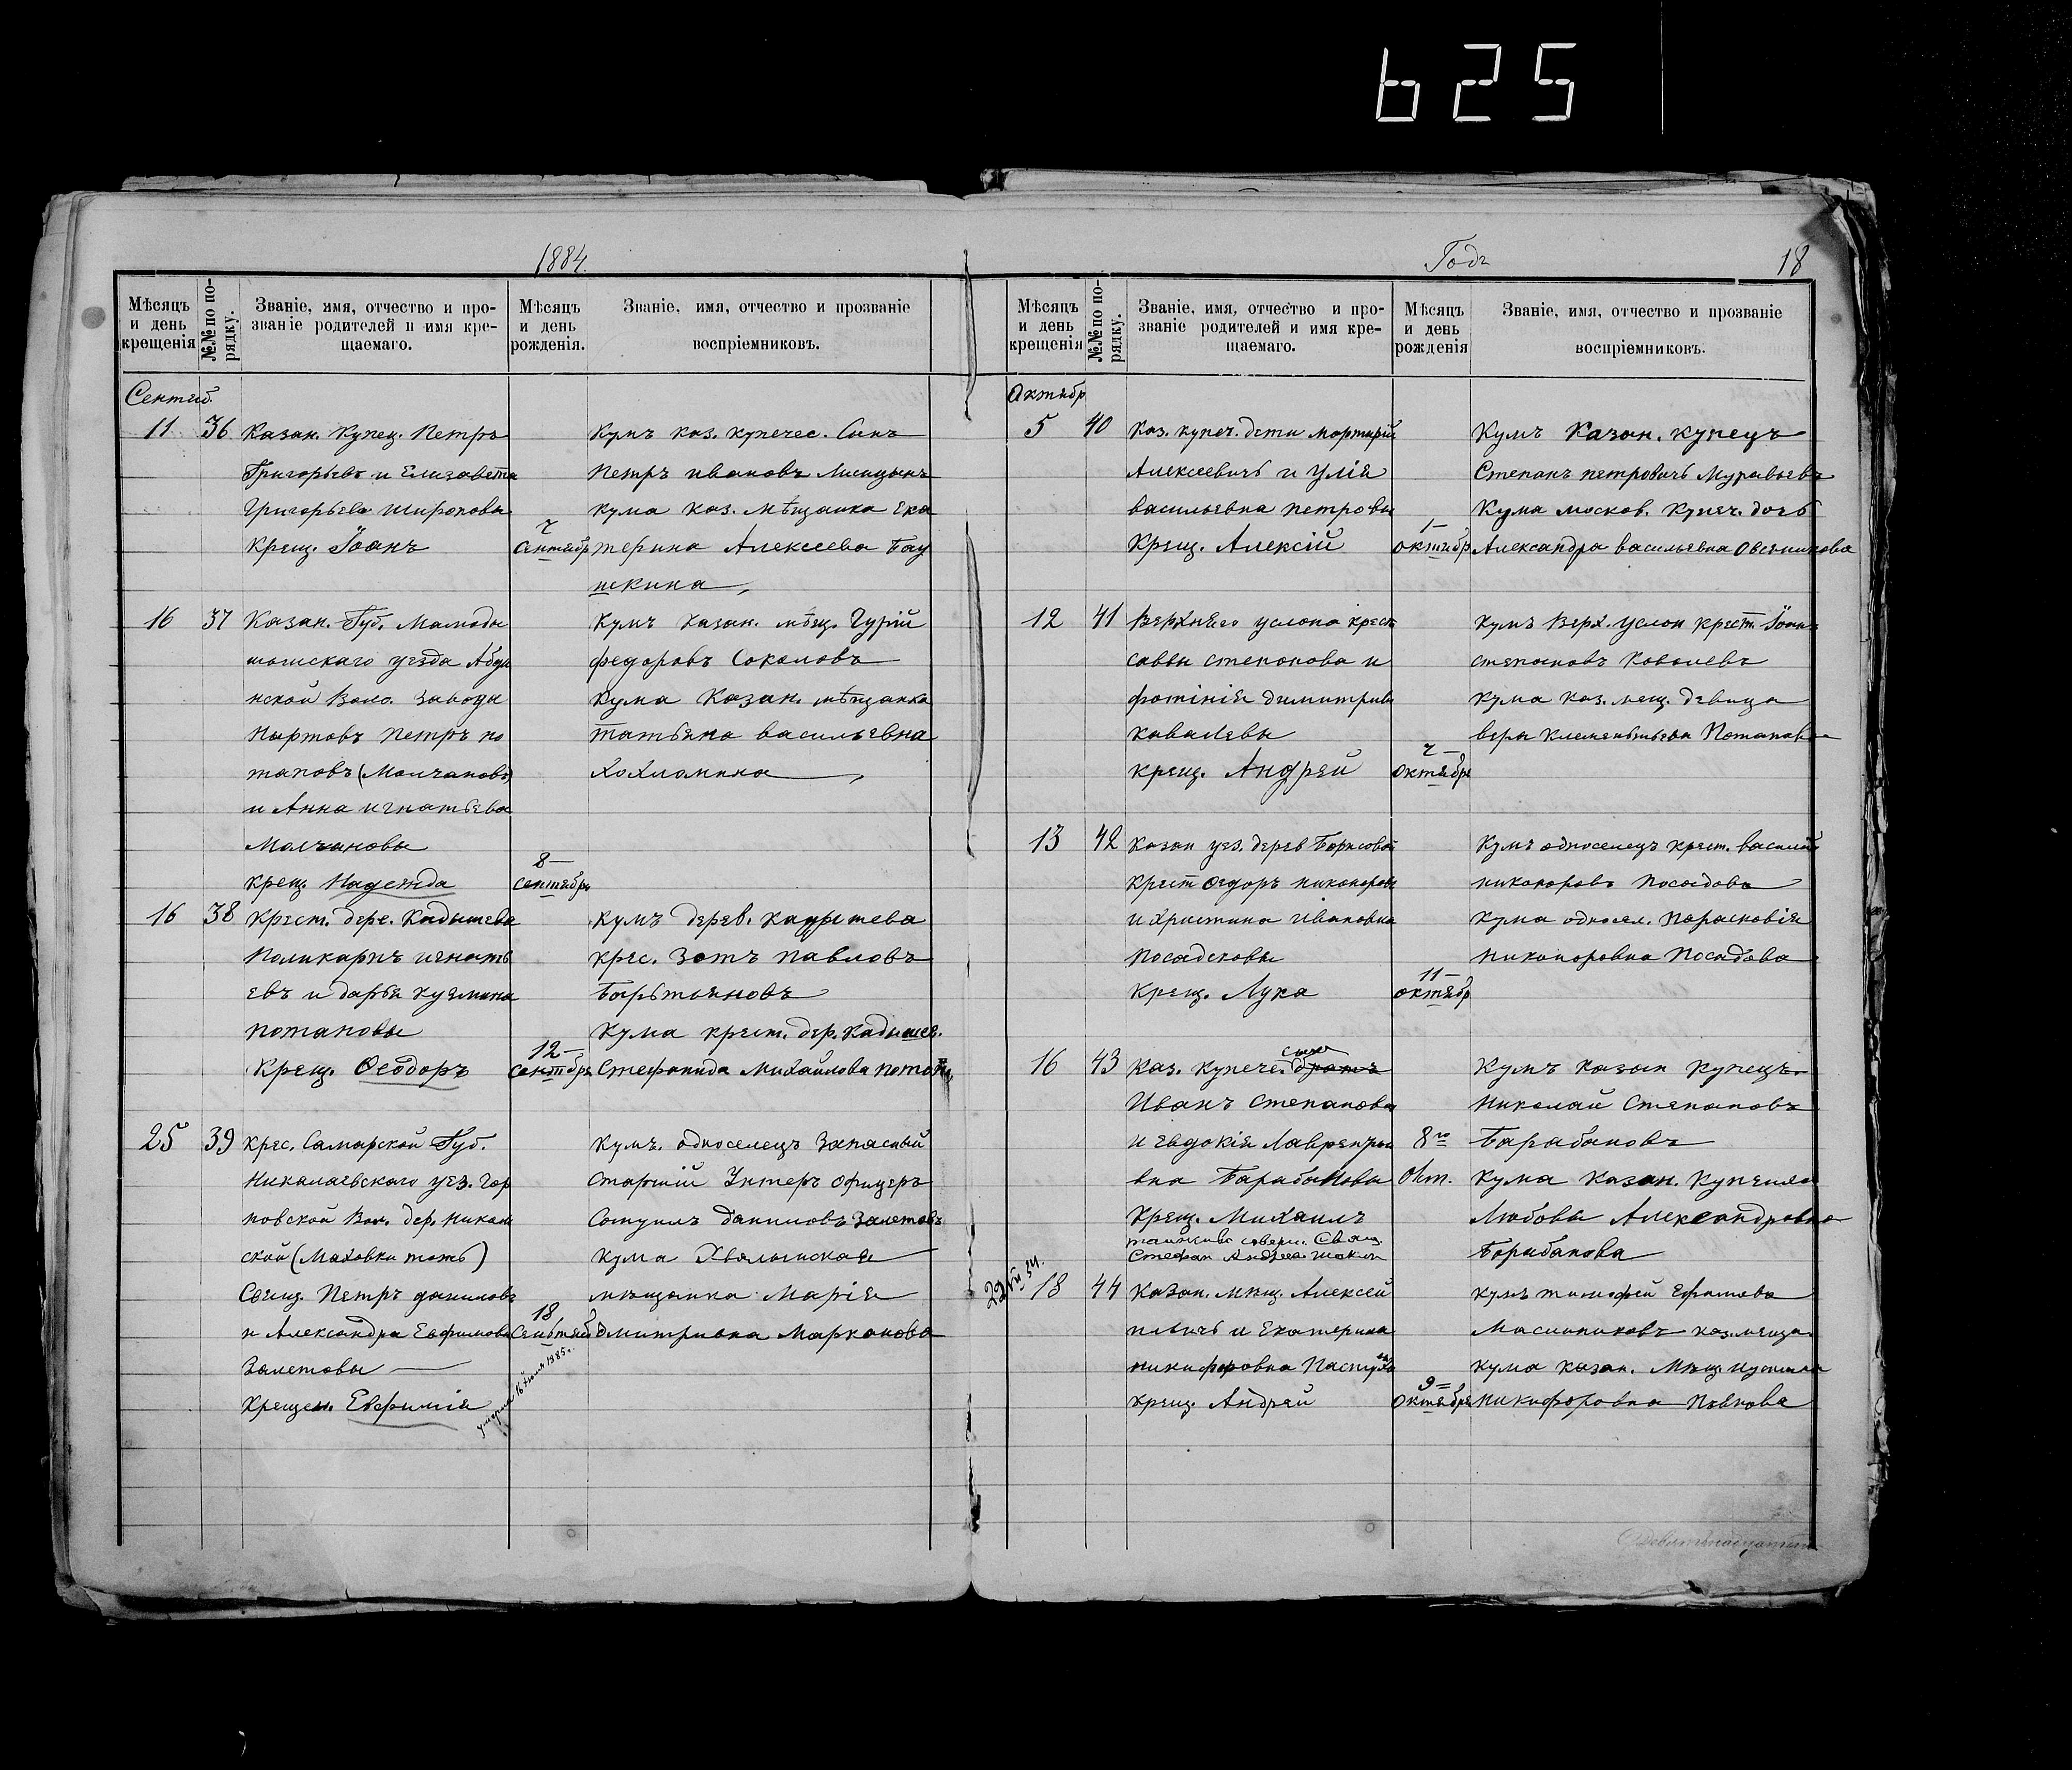 625
1884.
Мѣсяцъ и день крещенія
№№ по порядку.
Званіе, имя, отчество и про-
званіе родителей и имя кре-
щаемаго.
Мѣсяцъ и день рожденія.
Званіе, имя, отчество и прозваніе
воспріемниковъ.
Сентяб.
11 36 Казан. Купец. Петръ
Григорьевъ и Елизавета
Григорьева Широковы
Крещ. Іоанъ
7 Сентябр
Кумъ каз. купечес. Сынъ
Петръ ивановъ Лисицынъ
кума каз. мѣщанка Ека
терина Алексеева Бау
шкина
16 37 Казан. Губ. Мамады
шскаго уезда Абди
нской Воло. Заводы
Ныртовъ Петръ по
таповъ (Молчановъ)
и Анна игнатьева
Молчановы
крещ. Надежда
8 сентябрь
Кумъ казан. мѣщ. Гурій
федоровъ Соколовъ
Кума Казан. мѣщанка
татьяна васильевна
Хохломина
16 38 Крест. дере. Кадышева
Поликарпъ игнать
евъ и дарья кузмина
потаповы
Крещ. Ѳеодоръ
12 сентябрь
Кумъ дерев. кадышева
крес. Зотъ павловъ
Кума крест. дер. Кадышев.
Стефанида Михайлова
25 39 крес. Самарской Губ.
Николаевскаго уез. Гор
новской Вол. дер.
ской (Маховки тотъ)
Петръ даниловъ
и Александра Евфимова
Залетовы
Крещен. Евфимія
18 Сентяб
умерла 16 1885 г.
Кумъ. односелецъ Запасный
Старшій Унтеръ офицеръ
даниловъ Залетовъ
кума Хвалынская
мѣщанка Марія
дмитривна Марканова
Годъ
18
Мѣсяцъ и день крещенія
№№ по порядку.
Званіе, имя, отчество и про-
званіе родителей и имя кре-
щаемаго.
Мѣсяцъ и день рожденія
Званіе, имя, отчество и прозваніе
воспріемниковъ.
Октябр
5 40 Каз. купеч. дети мартирій
Алексеевичъ и Улія
васильевна петровы
Крещ. Алексій
1 октябр
Кумъ Казан. купецъ
Степанъ петровичъ Муравьевъ
Кума москов. Купеч. дочь
Александра васильевна Овсяникова
12 41 Верхняго услона крест
саввы степанова и
фотінія димитрива
Кавалевы
крещ. Андрей
7 октябрь
кумъ Верх. услон крест. Іоанъ
степановъ Ковалевъ
кума каз. мещ. девица
вера Климентьевна Потапова
13 42 казан уез. дерев Борисовой
крест Ѳедоръ никоноровъ
и христина ивановна
посадсковы
Крещ. Лука
11 октябр
Кумъ односелецъ крест. василій
никоноровъ посадовъ
Кума односел. Парасковія
никоноровна Посадова
16 43 Каз. купече. братъ сынъ
Иванъ Степанова
и евдокія Лавренты
вна Барабановы
Крещ. Михаилъ
таинство соверш. Свящ.
Стефан Андреев
8го Окт.
Кумъ казан купецъ
Николай Степановъ
Барабановъ
Кума казан. Купчиха
Любовь Александровна
Барабанова
18 44 Казан. мѣщ. Алексей
и Екатерина
никифоровна
крещ. Андрей
9 Октября
кумъ тимофей
Масленниковъ каз. меща
кума казан. Мѣщ.
никифоровна Певнова